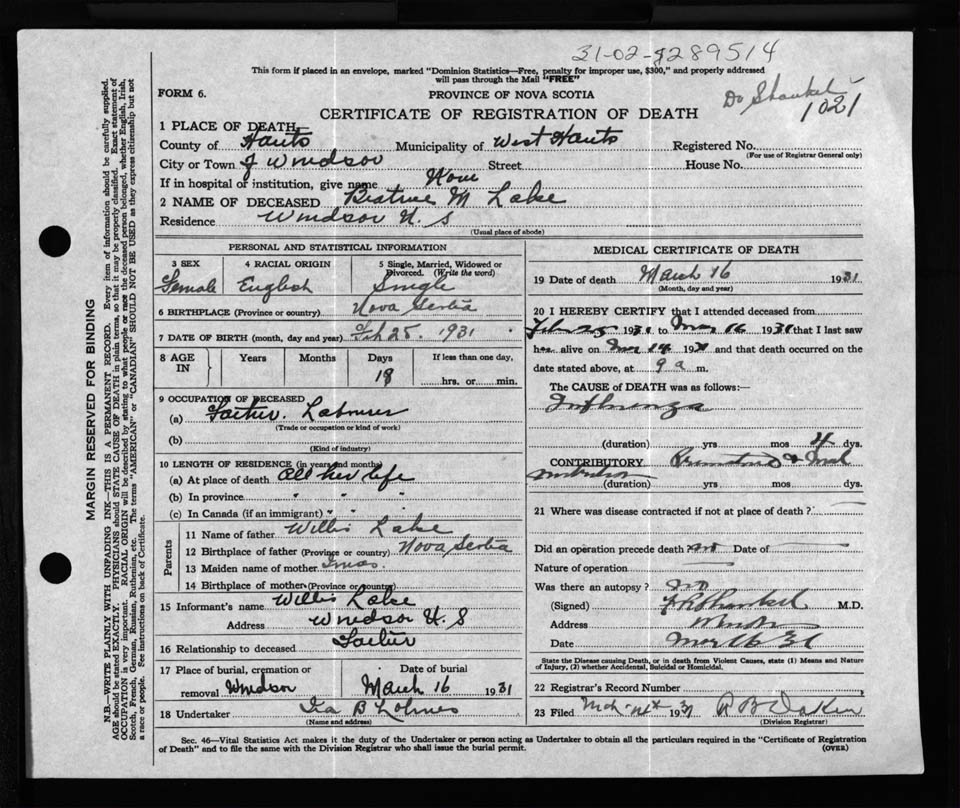 31-02-
This form if placed in an envelope, marked "Dominion Statistics—Free, penalty for improper use, $300," and properly addressed
will pass through the Mail "FREE"
FORM 6.
PROVINCE OF NOVA SCOTIA
Dr Shankel
1021
CERTIFICATE OF REGISTRATION OF DEATH
1 PLACE OF DEATH
County of Hants Municipality of West Hants Registered No.
(For use of Registrar General only)
City or Town of Windsor Street House No.
If in hospital or institution, give name
2 NAME OF DECEASED M Lake
Residence Windsor N. S
(Usual place of abode)
PERSONAL AND STATISTICAL INFORMATION
3 SEX 4 RACIAL ORIGIN 5 Single, Married, Widowed or Divorced. (Write the word)
Female English Single
6 BIRTHPLACE (Province or country) Nova Scotia
7 DATE OF BIRTH (month, day and year) Feb 25 1931
8 AGE IN Years Months Days If less than one day,
18 hrs. or min.
9 OCCUPATION OF DECEASED
(a) Father. Labourer
(Trade or occupation or kind of work)
(b)
(Kind of industry)
10 LENGTH OF RESIDENCE (in years and months)
(a) At place of death All her life
(b) In province " " "
(c) In Canada (if an immigrant) " " "
Parents
11 Name of father Willis Lake
12 Birthplace of father (Province or country) Nova Scotia
13 Maiden name of mother
14 Birthplace of mother (Province or country)
15 Informant's name Willis Lake
Address Windsor N. S
16 Relationship to deceased Father
17 Place of burial, cremation or removal Windsor
Date of burial March 16 1931
18 Undertaker Ira B
(Name and address)
MEDICAL CERTIFICATE OF DEATH
19 Date of death March 16 1931
(Month, day and year)
20 I HEREBY CERTIFY that I attended deceased from
Feb 25 1931 to Mar 16 1931 that I last saw
her alive on Mar 14 1931 and that death occurred on the
date stated above, at 9 a m.
The CAUSE of DEATH was as follows:—
Influenza
(duration) yrs mos 4 dys.
CONTRIBUTORY
(duration) yrs mos dys.
21 Where was disease contracted if not at place of death?
Did an operation precede death no Date of
Nature of operation
Was there an autopsy? no
(Signed) Shankel M.D.
Address Windsor
Date Mar 16 31
State the Disease causing Death, or in death from Violent Causes, state (1) Means and Nature
of Injury, (2) whether Accidental, Suicidal or Homicidal.
22 Registrar's Record Number
23 Filed 1931
(Division Registrar)
Sec. 46—Vital Statistics Act makes it the duty of the Undertaker or person acting as Undertaker to obtain all the particulars required in the "Certificate of Registration
of Death" and to file the same with the Division Registrar who shall issue the burial permit.
(OVER)
MARGIN RESERVED FOR BINDING
N.B.—WRITE PLAINLY WITH UNFADING INK—THIS IS A PERMANENT RECORD. Every item of information should be carefully supplied.
AGE should be stated EXACTLY. PHYSICIANS should STATE CAUSE OF DEATH in plain terms, so that it may be properly classified. Exact statement of
OCCUPATION is very important. RACIAL ORIGIN will be described by stating to what people or race the deceased person belonged, whether English, Irish,
Scotch, French, German, Russian, Ruthenian, etc. The terms "AMERICAN" or "CANADIAN" SHOULD NOT BE USED as they express citizenship but not
a race or people. See instructions on back of Certificate.